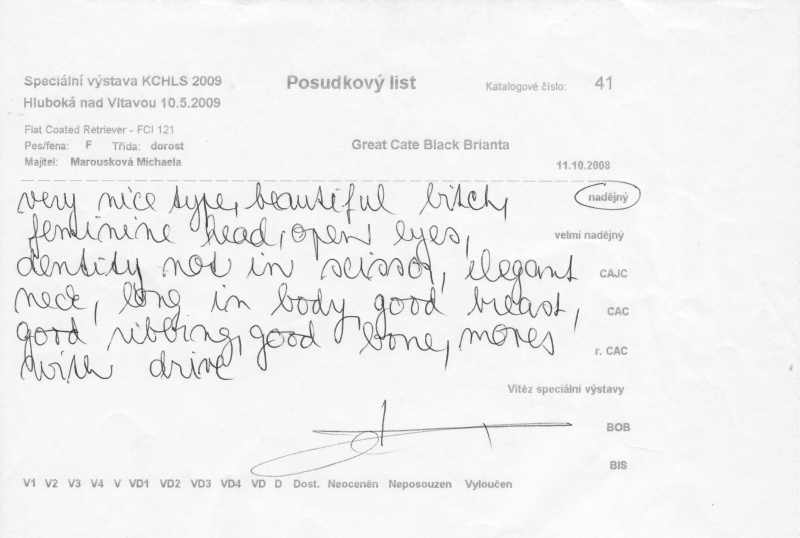 Speciální výstava KCHLS 2009
Posudkový list
Katalogové číslo: 41
Hluboká nad Vltavou 10.5.2009
Flat Coated Retriever - FCI 121
Pes/fena: F Třída: dorost
Great Cate Black Brianta
Majitel: Marousková Michaela
11.10.2008
very nice type, beautiful bitch,
nadějný
feminine head, open eyes,
velmi nadějný
dentity not in scissor, elegant
CAJC
neck, long in body, good breast,
CAC
good ribbing, good bone, moves
r. CAC
with drive
Vítěz speciální výstavy
BOB
BIS
V1 V2 V3 V4 V VD1 VD2 VD3 VD4 VD D Dost. Neoceněn Neposouzen Vyloučen